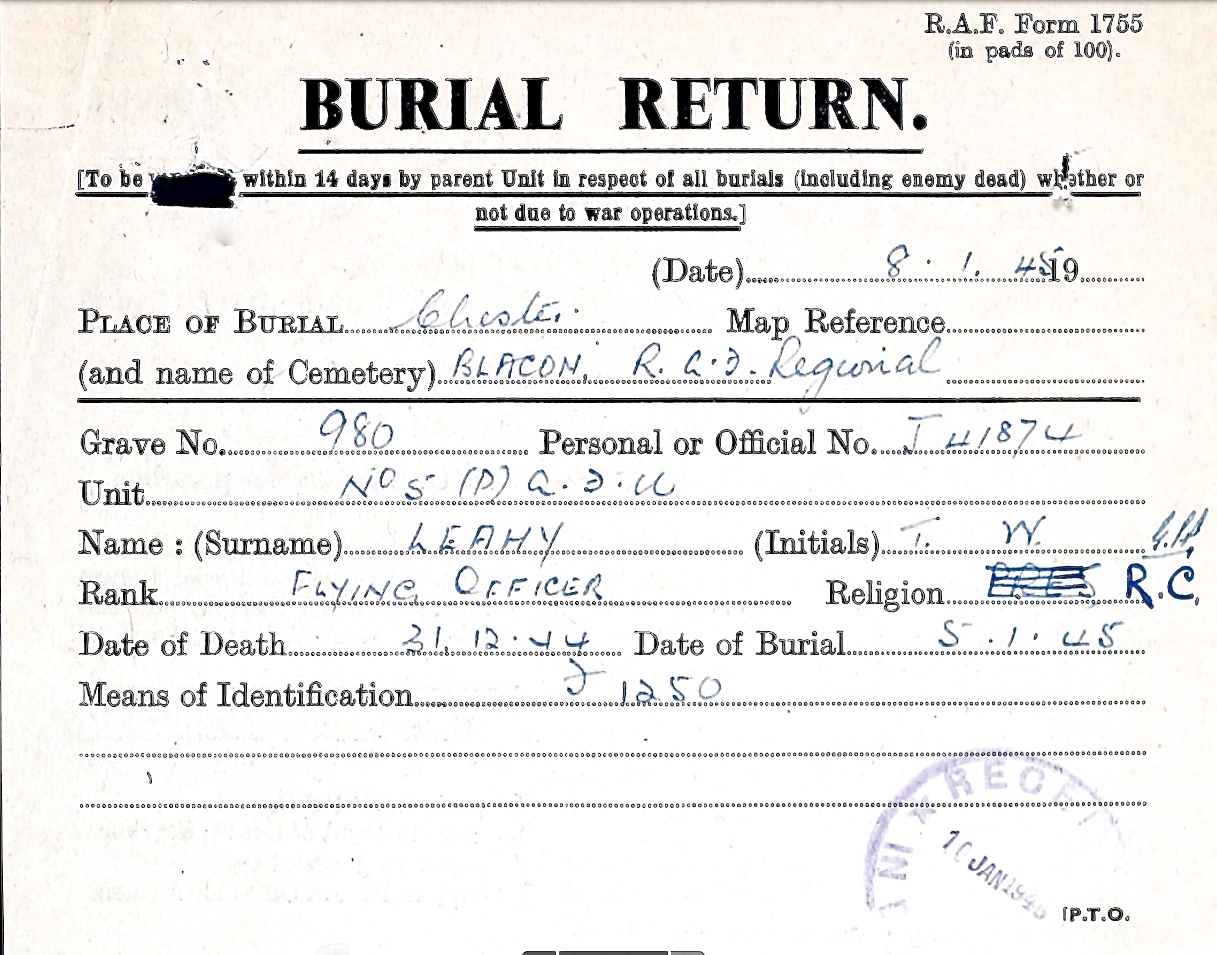 R.A.F. Form 1755
(in pads of 100).
BURIAL RETURN.
[To be within 14 days by parent Unit in respect of all burials (including enemy dead) whether or
not due to war operations.]
(Date) 8 . 1. 45 19
PLACE OF BURIAL Chester Map Reference
(and name of Cemetery) BLACON, R.A.F. Regional
Grave No. 980 Personal or Official No. J 41874
Unit No 5 (P) A.F.U
Name : (Surname) LEAHY (Initials) T. W.
Rank FLYING OFFICER Religion R.C.
Date of Death 31.12.44 Date of Burial 5.1.45
Means of Identification F 1250
RECOR
10 JAN 1945
[P.T.O.